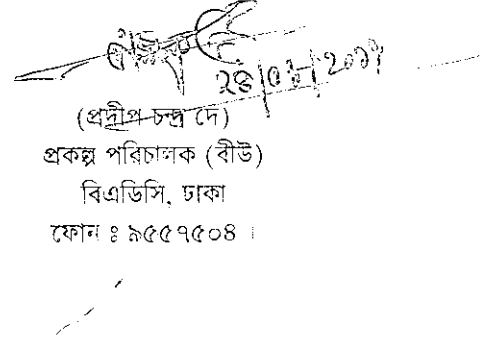 (প্রদীপ চন্দ্র দে)
প্রকল্প পরিচালক (বীউ)
বিএডিসি, ঢাকা
ফোন ঃ ৯৫৫৭৫০৪ ।